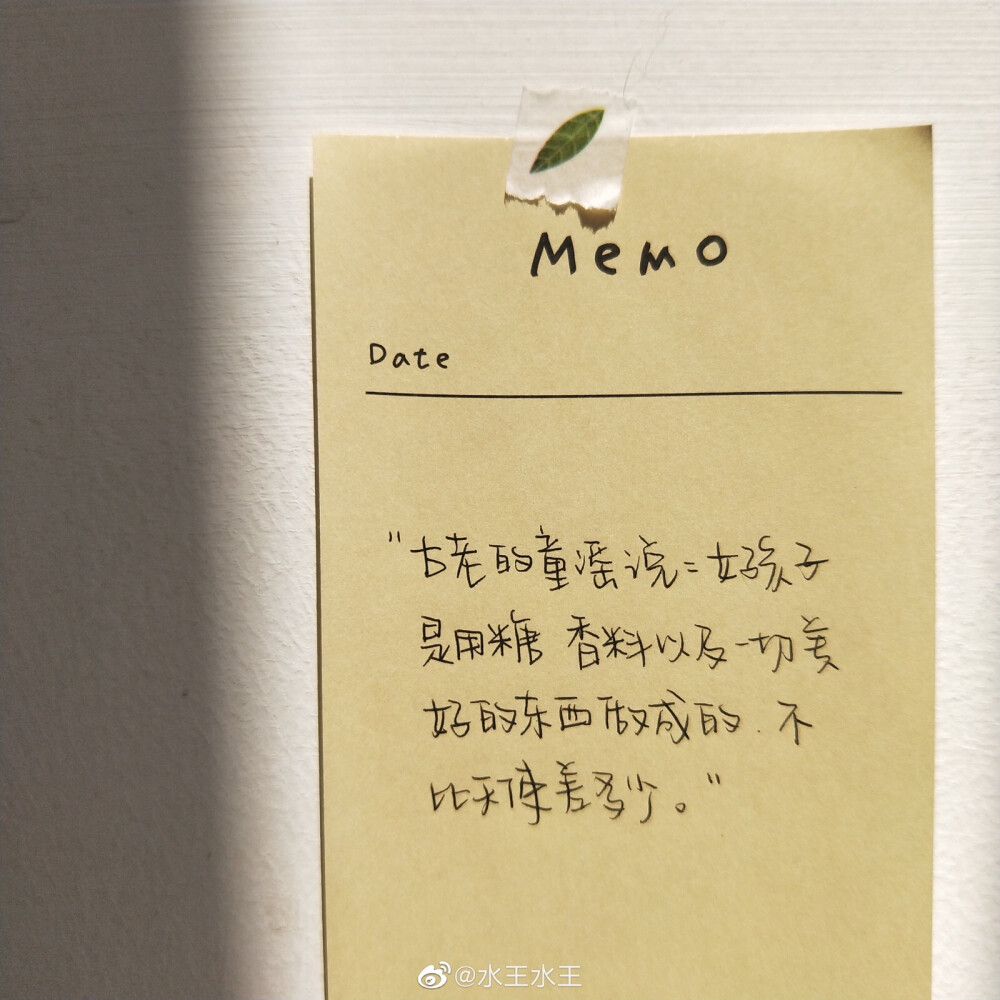 Memo
Date
"古老的童谣说:好孩子
是用糖 香料以及一切美
好的东西做成的.不
比天使差多少。"
@水王水王